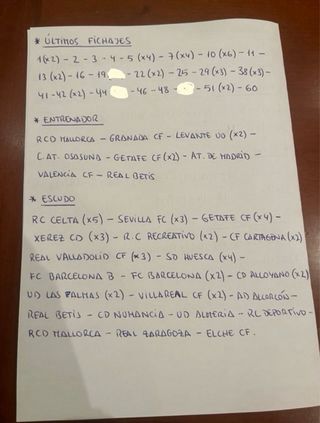 * ÚLTIMOS FICHAJES
1(x2) - 2 - 3 - 4 - 5 (x4) - 7 (x4) - 10 (x6) - 11 -
13 (x2) - 16 - 19 - 22 (x2) - 25 - 29 (x3) - 38 (x3) -
41 - 42 (x2) - 44 - 46 - 48 - - 51 (x2) - 60
* ENTRENADOR
RCD MALLORCA - GRANADA CF - LEVANTE UD (x2) -
C. AT. OSASUNA - GETAFE CF (x2) - AT. DE MADRID -
VALENCIA CF - REAL BETIS
* ESCUDO
RC CELTA (x5) - SEVILLA FC (x3) - GETAFE CF (x4) -
XEREZ CD (x3) - R.C RECREATIVO (x2) - CF CARTAGENA (x2)
REAL VALLADOLID CF (x3) - SD HUESCA (x4) -
FC BARCELONA B - FC BARCELONA (x2) - CD ALCOYANO (x2)
UD LAS PALMAS (x2) - VILLAREAL CF (x2) - AD ALCORCÓN -
REAL BETIS - CD NUMANCIA - UD ALMERIA - RC DEPORTIVO -
RCD MALLORCA - REAL ZARAGOZA - ELCHE CF.